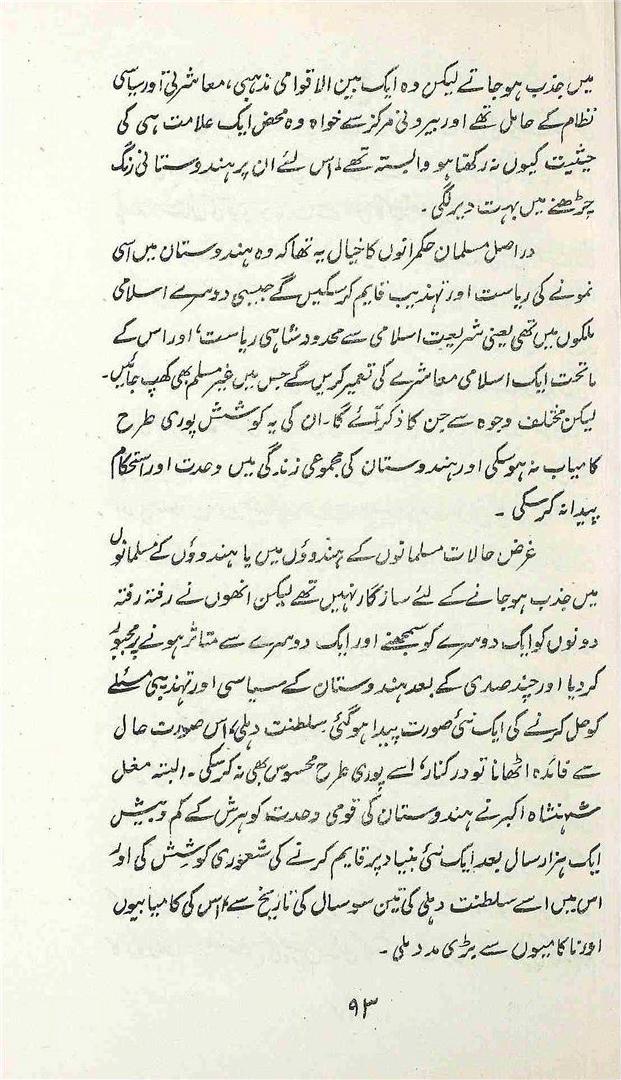 میں جذب ہو جاتے لیکن وہ ایک بین الاقوامی مذہبی، معاشرتی اور سیاسی
نظام کے حامل تھے اور بیرونی مرکز سے خواہ وہ محض ایک علامت ہی کی
حیثیت کیوں نہ رکھتا ہو وابستہ تھے، اس لئے ان پر ہندوستانی رنگ
چڑھنے میں بہت دیر لگی۔
در اصل مسلمان حکمرانوں کا خیال یہ تھا کہ وہ ہندوستان میں اسی
نمونے کی ریاست اور تہذیب قایم کر سکیں گے جیسی دوسرے اسلامی
ملکوں میں تھی یعنی شریعت اسلامی سے محدود شاہی ریاست، اور اس کے
ماتحت ایک اسلامی معاشرے کی تعمیر کریں گے جس میں غیر مسلم بھی کھپ جائیں۔
لیکن مختلف وجوہ سے جن کا ذکر آئے گا۔ ان کی یہ کوشش پوری طرح
کامیاب نہ ہوسکی اور ہندوستان کی مجموعی زندگی میں وحدت اور استحکام
پیدا نہ کر سکی۔
غرض حالات مسلمانوں کے ہندوؤں میں یا ہندوؤں کے مسلمانوں
میں جذب ہو جانے کے لئے سازگار نہیں تھے لیکن انھوں نے رفتہ رفتہ
دونوں کو ایک دوسرے کو سمجھنے اور ایک دوسرے سے متاثر ہونے پر مجبور
کر دیا اور چند صدی کے بعد ہندوستان کے سیاسی اور تہذیبی مسئلے
کو حل کرنے کی ایک نئی صورت پیدا ہو گئی سلطنت دہلی، اس صورت حال
سے فائدہ اٹھانا تو درکنار، اسے پوری طرح محسوس بھی نہ کر سکی۔ البتہ مغل
شہنشاہ اکبر نے ہندوستان کی قومی وحدت کو ہرش کے کم و بیش
ایک ہزار سال بعد ایک نئی بنیاد پر قایم کرنے کی شعوری کوشش کی اور
اس میں اسے سلطنت دہلی کی تین سو سال کی تاریخ سے، اس کی کامیابیوں
اور ناکامیوں سے بڑی مدد ملی۔
۹۳